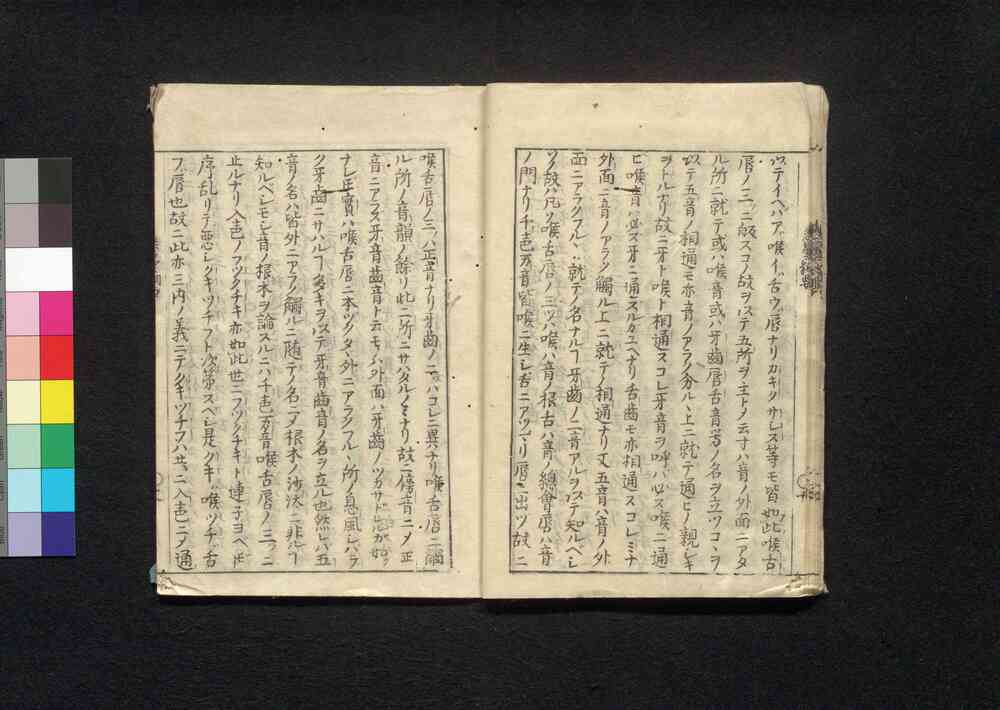 以テイヘハア、喉イ、舌ウ、唇ナリカキクサシスセ等モ皆如此喉舌
唇ノ三ツニ皈スコノ故ヲ以テ五所ヲ主トノ云寸ハ音ノ外面ニアタ
ル所ニ就テ或ハ喉音或ハ牙齒唇舌音等ノ名ヲ立ツコヽヲ
以テ五音ノ相通モ亦音ノアラク分ルヽ上ニ就テ通ヒノ親シキ
ヲトルナリ故ニ牙ト喉ト相通スコレ牙音ヲ呼ハ必ス喉ニ通
ヒ喉音ハ必ス牙ニ通スルカユヘナリ舌齒モ亦相通スコレミナ
外面ニ音ノアラク觸ル上ニ就テノ相通ナリ又五音ハ音ノ外
面ニアラクフルヽニ就テノ名ナルフ牙齒ノ二音アルヲ以テ知ルヘシ
ソノ故ハ凡ソ喉舌唇ノ三ツハ喉ハ音ノ根舌ハ音ノ總會唇ハ音
ノ門ナリ千色万音皆喉ニ生シ舌ニアツマリ唇ニ出ツ故ニ
喉舌唇ノ三ハ正音ナリ牙齒ノ二ハコレニ異ナリ喉舌唇ニ
ル所ノ音韻ノ餘リ此二所ニサハタルノミナリ故ニ傍音ニメ正
音ニアラス牙音齒音ト云モノハ外面ハ牙齒ノツカサトルカ如
ナレ正實ハ喉舌唇ニ本ツクタヽ外ニアラクフルヽ所ノ息風シハラ
ク牙齒ニサハルフ多キヲ以テ牙音齒音ノ名ヲ立ル也然レハ五
音ノ名ハ皆外ニアラク觸ルニ随テノ名ニメ根本ノ沙汰ニ非ルフ
知ルベシモシ音ノ根本ヲ論スルニハ千色万音喉舌唇ノ三ツニ
止ルナリ入色ノフツクチキ亦如此世ニフツクチキト連子ヨヘ
序乱リテ悪シクキツチフト次第スベシ是クキ、喉ツチ、舌
フ、唇也故ニ此亦三内ノ義ニテクキツチフハ共ニ入色ニノ通